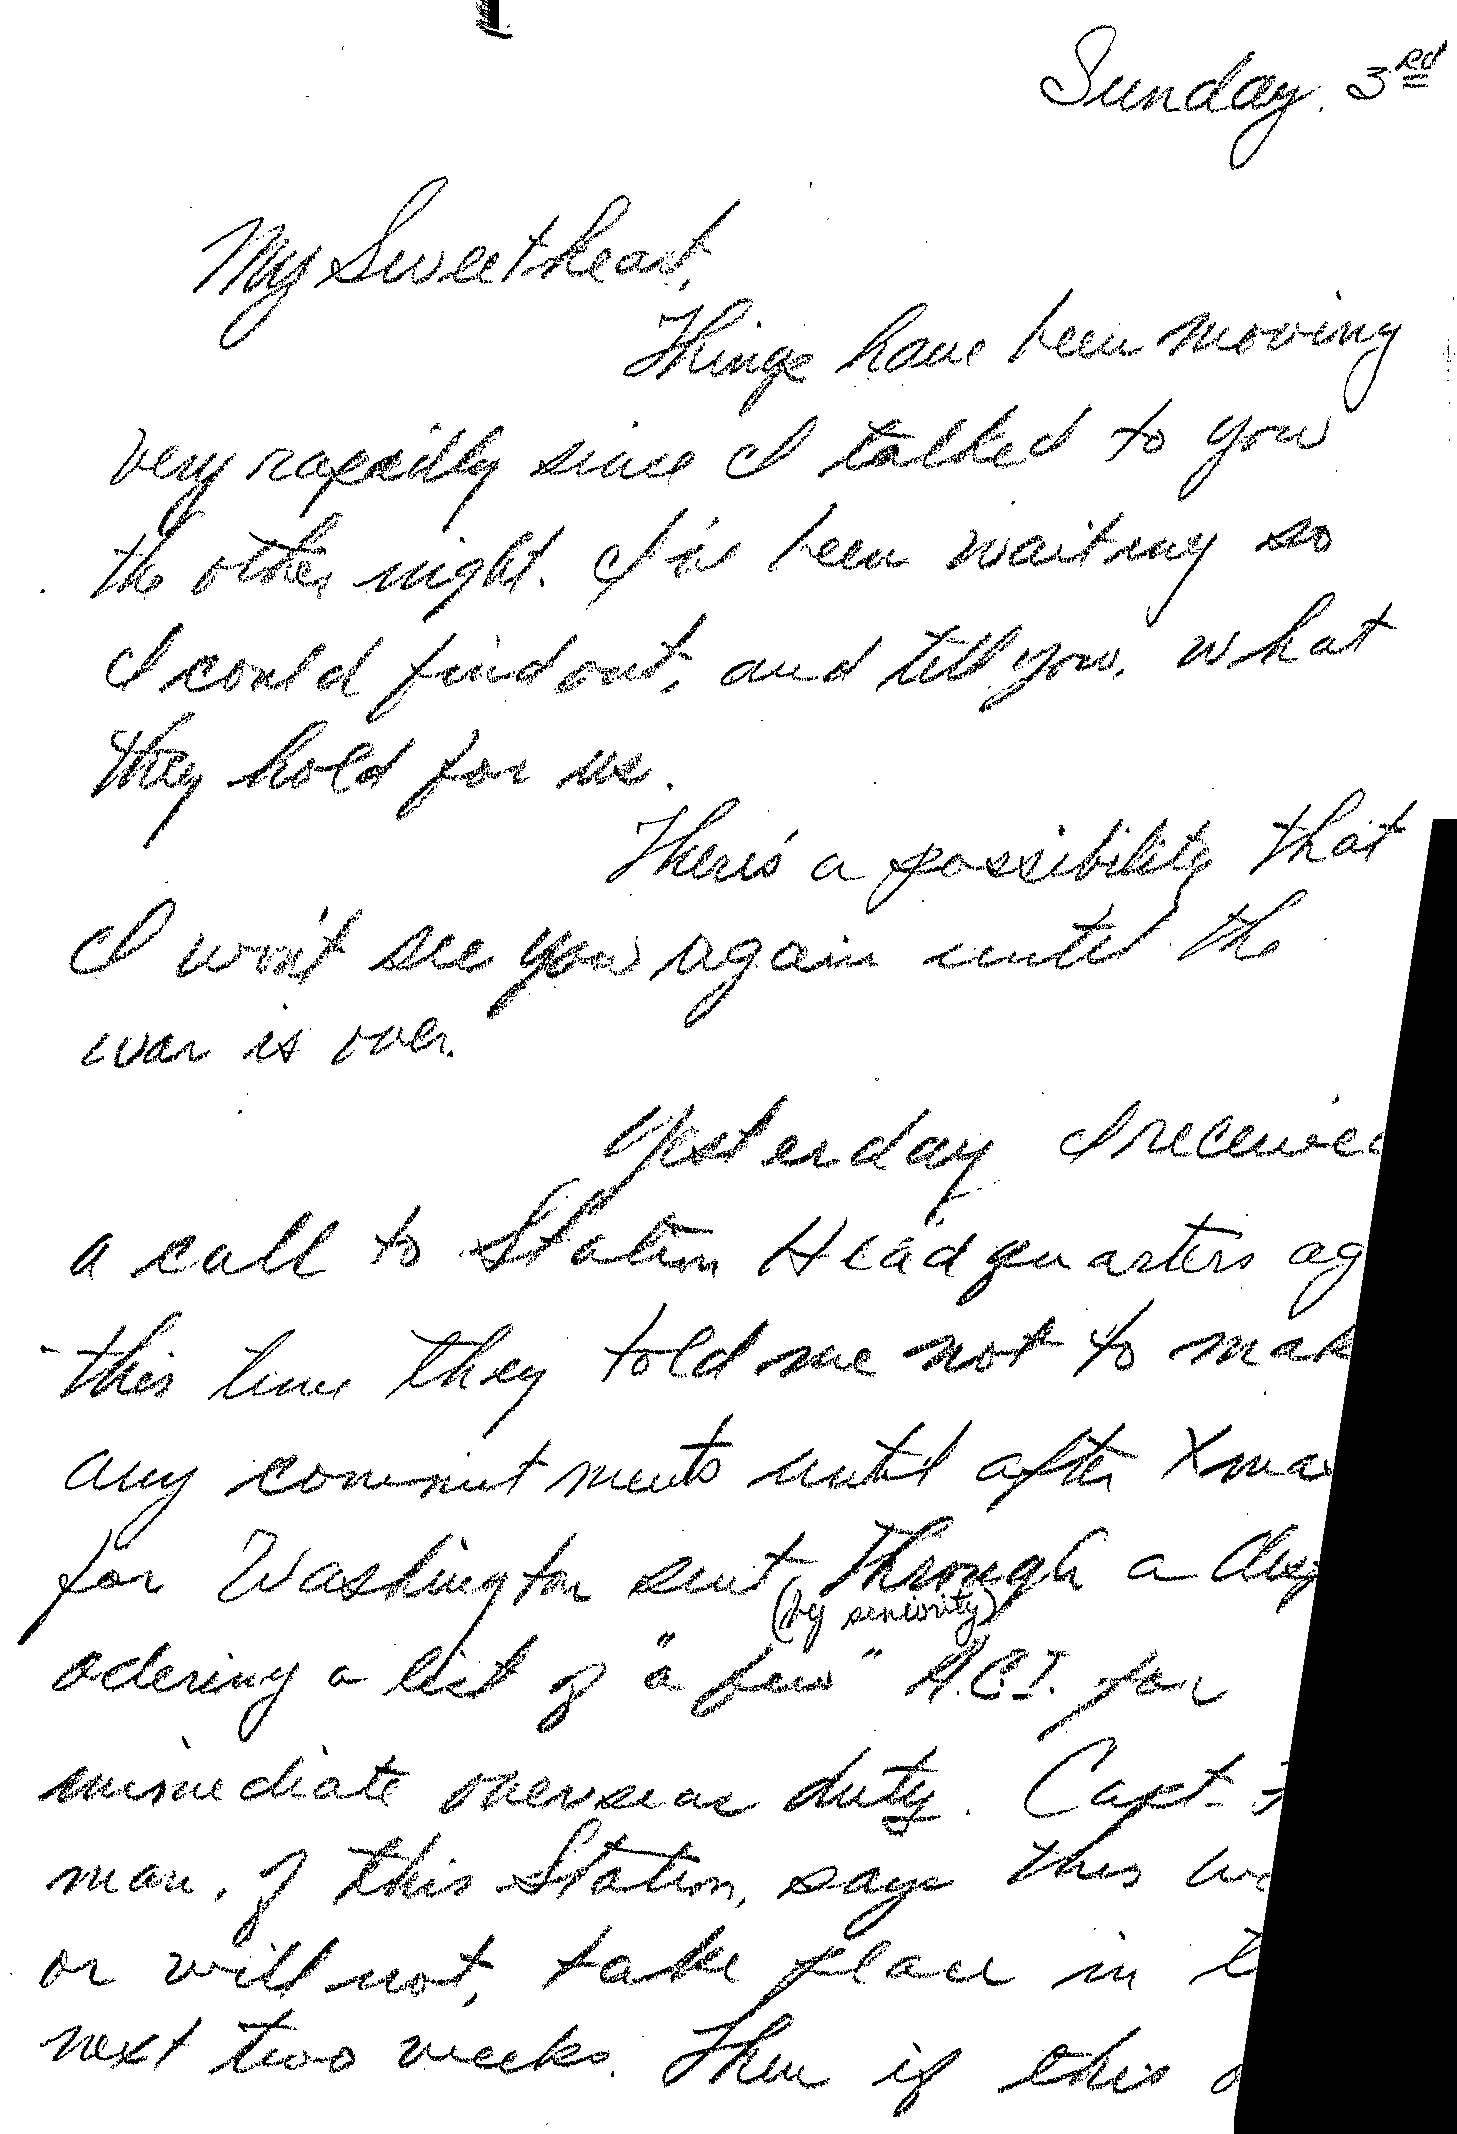 Sunday. 3rd
My Sweetheart,
Things have been moving
very rapidly since I talked to you
the other night. I've been waiting so
I could find out, and tell you, what
they hold for us.
There's a possibility that
I won't see you again until the
war is over.
Yesterday I receive
a call to Station Headquarters ag
this time they told me not to mak
any commitments until after Xma
for Washington sent through a disp
(by seniority)
odering a list of "a few" A.C.I. for
immediate overseas duty. Capt.
man, of this Station, says this
or will not, take place in
next two weeks. Then if this